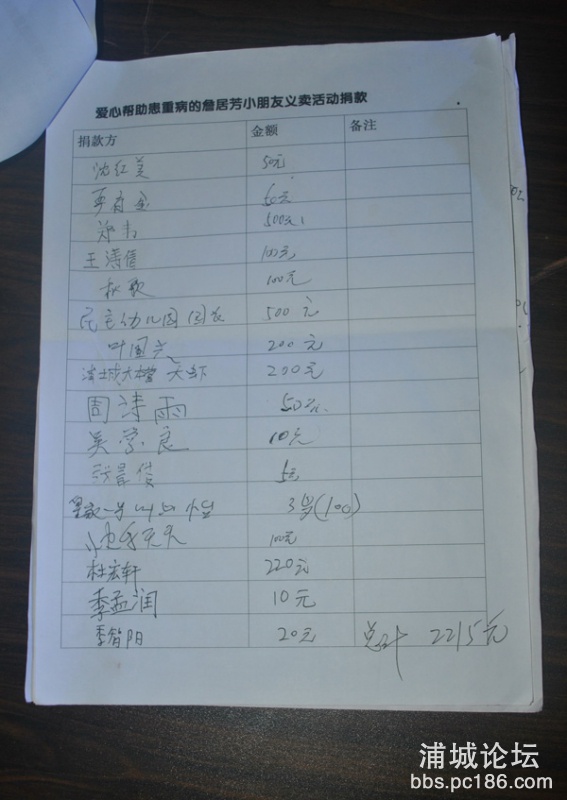 爱心帮助患重病的詹居芳小朋友义卖活动捐款
捐款方 金额 备注
沈红美 50元
50元
500元
王 100元
秋歌 100元
民主幼儿园 500元
叶国 200元
浦城大本营 大虾 200元
周诗雨 50元
吴学良 10元
5元
3岁(100)
100元
杜宏轩 220元
季孟润 10元
季智阳 20元 总计 2215元
浦城论坛
bbs.pc186.com